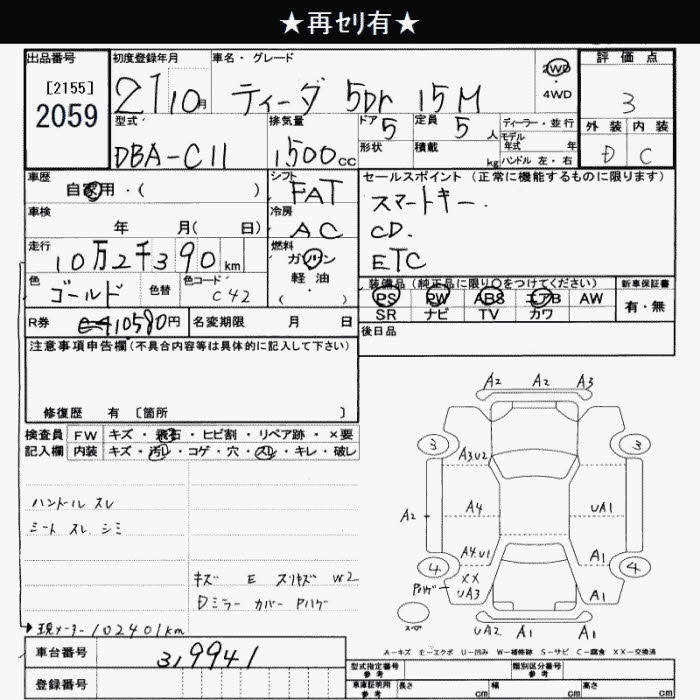 ★再ｾﾘ有★
出品番号 [2155] 2059
初度登録年月 21 10月
車名・グレード ティーダ 5Dr 15M
2WD・4WD
評価点 3
外装 D 内装 C
型式 DBA-C11
排気量 1500cc
ドア 5 定員 5人
形状 積載 kg
ディーラー・並行
モデル年式 年
ハンドル 左・右
車歴 自家用・( )
シフト FAT
セールスポイント (正常に機能するものに限ります)
スマートキー.
CD.
ETC
車検 年 月( 日)
冷房 AC
走行 10万2千390km
燃料 ガソリン 軽油 ( )
色 ゴールド 色替 色コード C42
装備品 (純正品に限り〇をつけてください)
PS PW ABS エアB AW
SR ナビ TV カワ
新車保証書 有・無
R券 10580円 名変期限 月 日
後日品
注意事項申告欄(不具合内容等は具体的に記入して下さい)
修復歴 有 〔箇所 〕
検査員記入欄
FW キズ・飛石・ヒビ割・リペア跡・×要
内装 キズ・汚レ・コゲ・穴・スレ・キレ・破レ
ハンドル スレ
シート スレ シミ
キズ E スリキズ W2
Dミラー カバー Pハゲ
現メーター 102401km
A2 A2 A3
3 3
A3U2
A2 A4 UA1
A4U1 A1
4 4
Pハゲ XX
UA3 A1
スペア
UA2 A1 A1
A-キズ E-エクボ U-凹み W-補修跡 S-サビ C-腐食 XX-交換済
車台番号 319941
登録番号
型式指定番号 参考
類別区分番号 参考
車庫証明用 参考 長さ cm 幅 cm 高さ cm